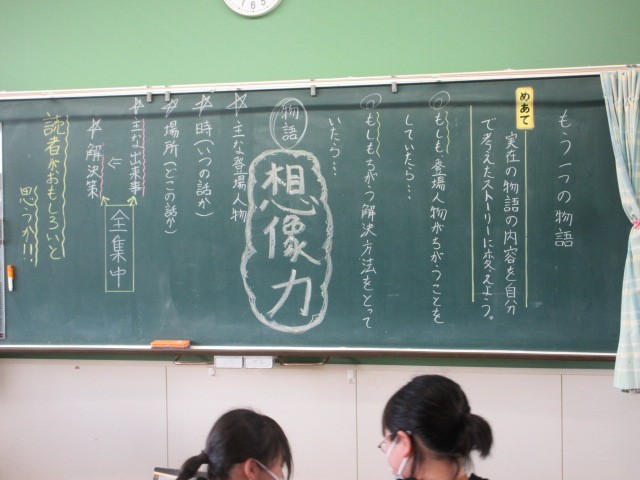 もう一つの物語
めあて
実在の物語の内容を自分
で考えたストーリーに変えよう。
○もしも登場人物がちがうことを
していたら…
○もしもちがう解決方法をとって
いたら…
物語
想像力
☆主な登場人物
☆時(いつの話か)
☆場所(どこの話か)
☆主な出来事
⇩
☆解決策
全集中
読者がおもしろいと
思うか!!